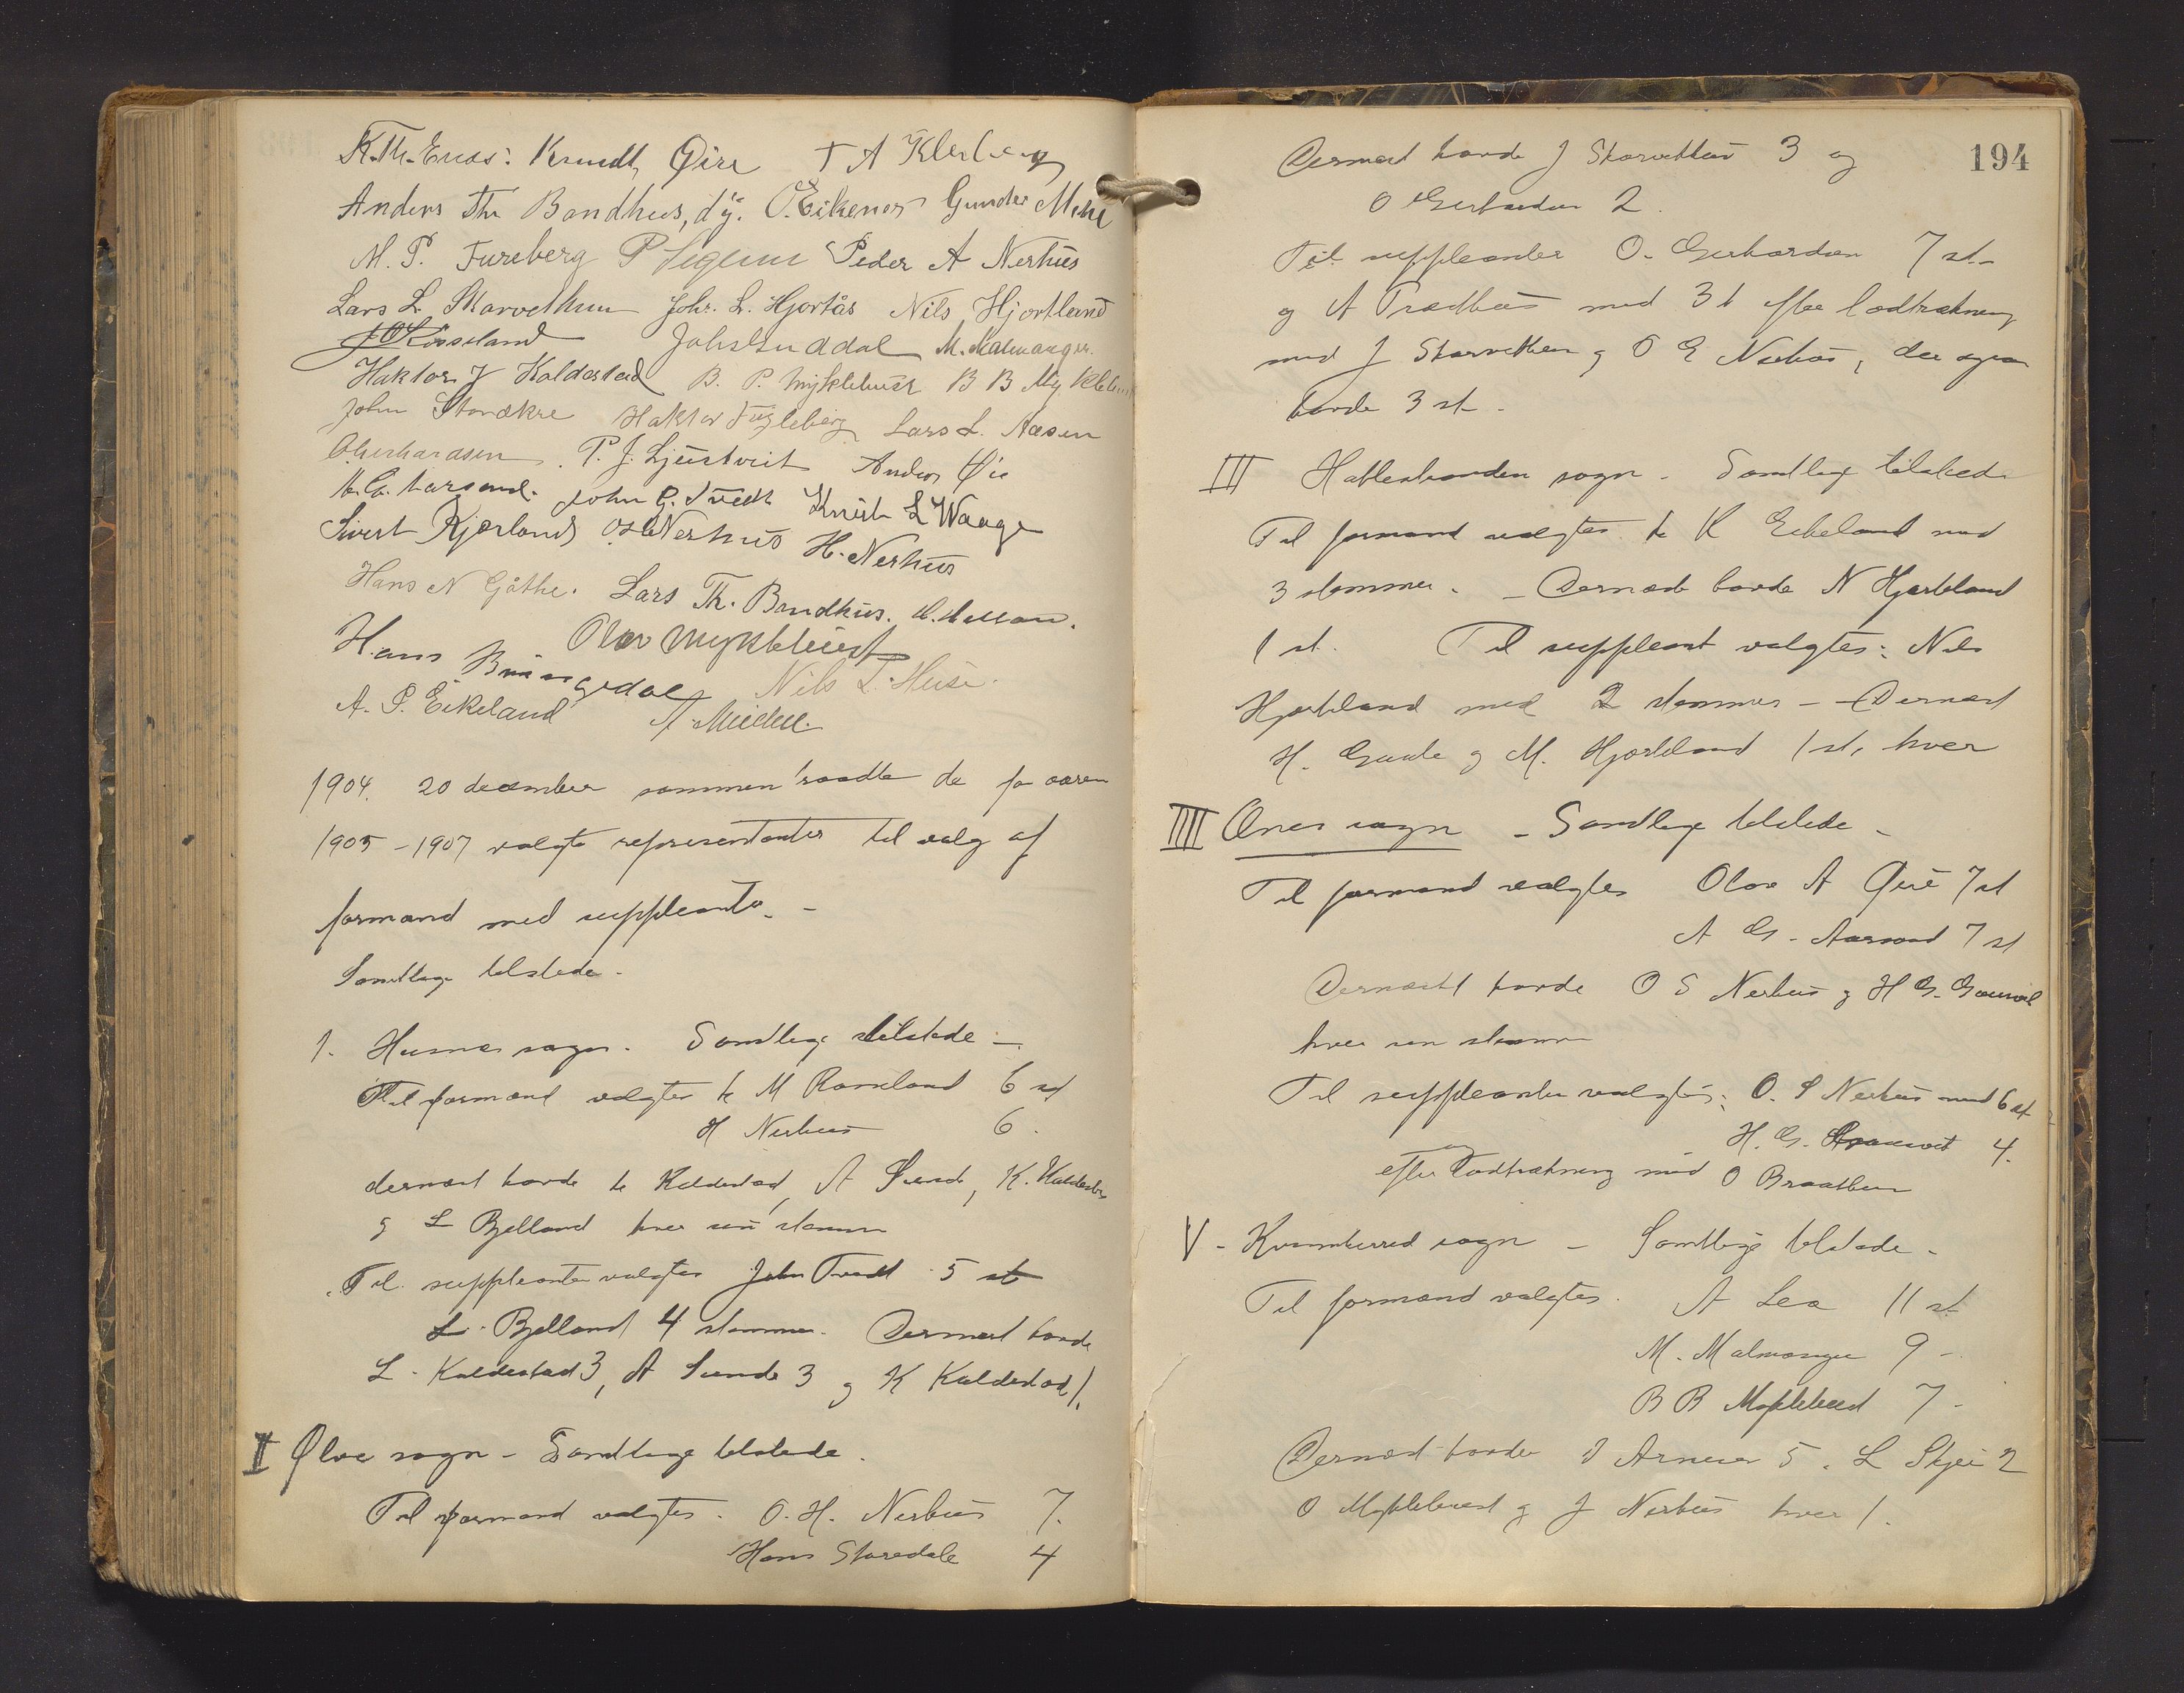 K. Th. Enæs. Knudt Øire T A Kleiberg
Anders Th Bondhus, dÿ. O. Eikenes Gunder Mehl
M. P. Fureberg P Peder A Nerhus
Lars L. Skarvethun Johs. L. Hjortås Nils Hjortland
Røssland Johs Guddal M. Malmanger.
Haktor J Koldestad B. P. Myklebust B B Myklebust
John Storækre Haktor Fugleberg Lars L. Aasen
O Gerhardsen. P. J. Ljustveit Anders Øie
A. G. Aarsand. John G. Tvedt Knut L Waage
Sivert Kjærland O H Nerhus H. Nerhus
Hans N Gåthe. Lars Th. Bondhus.
Olav Myklebust
Hans Bringedal Nils L. Huse.
A. P. Eikeland A.
1904. 20 december sammentraadte de for aaren
1905-1907 valgte representanter til valg af
formænd med suppleanter. -
Samtlige tilstede.
1. Husnes sogn. Samtlige tilstede -
Til formænd valgtes M Røssland 6 st
H Nerhus 6.
dernæst havde Kaldestad, A Sunde, K. Kaldestad
g L Bjelland hver sin stemme
Til suppleanter valgtes John Tvedt 5 st
L. Bjelland 4 stemmer. Dernæst havde
L. Kaldestad 3, A Sunde 3 g K Kaldestad 1.
II Ølve sogn - Samtlige tilstede.
Til formænd valgtes. O. H. Nerhus 7.
Hans Skaredale 4
194
Dernæst havde J Skarvethun 3 og
O Gerhardsen 2.
Til suppleanter O. Gerhardsen 7 st.
og A Trædhus med 3 t efter lodtrækning
med J Skarvethun g O E Nerhus, der ogsaa
havde 3 st.
III Hatlestranden sogn. Samtlige tilstede
Til formand valgtes K Eikeland med
3 stemmer. - Dernæst havde N Hjortland
1 st. Til suppleant valgtes: Nils
Hjortland med 2 stemmer - Dernæst
H. Gaute g M. Hjortland 1 st, hver
IIII Ænes sogn - Samtlige tilstede -
Til formænd valgtes Olav A Øire 7 st
A G. Aarsand 7 st
Dernæst havde O S Nerhus g H G.
hver sin stemme
Til suppleanter valgtes: O. S Nerhus med 6 st
og H. G. 4.
efter lodtrækning med O Braathun
V - Kvinnherred sogn - Samtlige tilstede -
Til formænd valgtes. A Lea 11 st
M. Malmanger 9 -
B B Myklebust 7 -
Dernæst havde Arnesen 5. L Skjei 2
O Myklebust g J Nerhus hver 1.